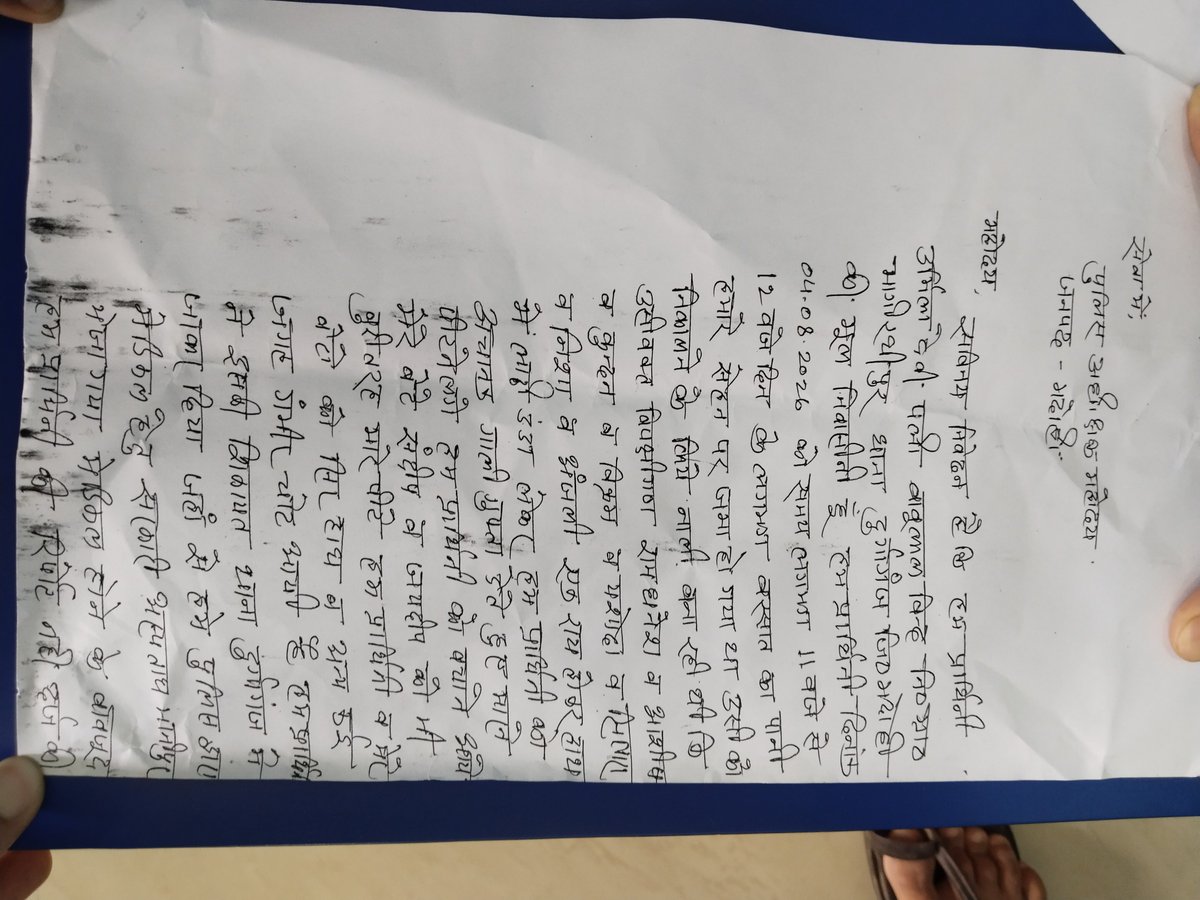 सेवा में,
पुलिस अधीक्षक महोदय
जनपद - भदोही.
महोदय,
सविनय निवेदन है कि हम प्रार्थिनी
उर्मिला देवी पत्नी बाबुलाल बिन्द नि०ग्राम
भागीरथीपुर थाना दुर्गागंज जि० भदोही
की मूल निवासिनी हूँ हम प्रार्थिनी दिनांक
04.08.2026 को समय लगभग 11 बजे से
12 बजे दिन के लगभग बरसात का पानी
हमारे सेहन पर जमा हो गया था उसी को
निकालने के लिये नाली बना रही थी कि
उसी वक्त विपक्षीगण रामधनेश व आशीष
व कुन्दन व विक्रम व यशोदा व
व निशा व अंजली एक राय होकर हाथ
में लाठी डंडा लेकर हम प्रार्थिनी को
अचानक गाली गुप्ता देते हुए मारने
पीटने लगे हम प्रार्थिनी को बचाने आये
मेरे बेटे संदीप व जयदीप को भी
बुरी तरह मारे पीटे हम प्रार्थिनी व मेरे
बेटो को सिर हाथ व अन्य कई
जगह गंभीर चोटे आयी हैं हम प्रार्थिनी
ने इसकी शिकायत थाना दुर्गागंज में
जाकर दिया जहाँ से हमें पुलिस द्वारा
मेडिकल हेतु सरकारी अस्पताल
भेजा गया मेडिकल होने के बावजूद
हम प्रार्थिनी की रिपोर्ट नही दर्ज की